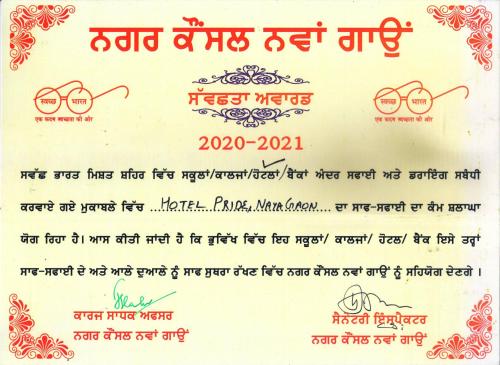 ਨਗਰ ਕੌਂਸਲ ਨਵਾਂ ਗਾਉਂ
ਸੱਵਛਤਾ ਅਵਾਰਡ
स्वच्छ भारत
एक कदम स्वच्छता की ओर
स्वच्छ भारत
एक कदम स्वच्छता की ओर
2020-2021
ਸਵੱਛ ਭਾਰਤ ਮਿਸ਼ਤ ਸ਼ਹਿਰ ਵਿੱਚ ਸਕੂਲਾਂ/ਕਾਲਜਾਂ/ਹੋਟਲਾਂ/ਬੈਂਕਾਂ ਅੰਦਰ ਸਫਾਈ ਅਤੇ ਡਰਾਇੰਗ ਸਬੰਧੀ
ਕਰਵਾਏ ਗਏ ਮੁਕਾਬਲੇ ਵਿੱਚ ...HOTEL PRIDE, NAYAGAON... ਦਾ ਸਾਫ-ਸਫਾਈ ਦਾ ਕੰਮ ਸ਼ਲਾਘਾ
ਯੋਗ ਰਿਹਾ ਹੈ। ਆਸ ਕੀਤੀ ਜਾਂਦੀ ਹੈ ਕਿ ਭੁਵਿੱਖ ਵਿੱਚ ਇਹ ਸਕੂਲਾਂ/ ਕਾਲਜਾਂ/ ਹੋਟਲ/ ਬੈਂਕ ਇਸੇ ਤਰ੍ਹਾਂ
ਸਾਫ-ਸਫਾਈ ਦੇ ਅਤੇ ਆਲੇ ਦੁਆਲੇ ਨੂੰ ਸਾਫ ਸੁਥਰਾ ਰੱਖਣ ਵਿੱਚ ਨਗਰ ਕੌਂਸਲ ਨਵਾਂ ਗਾਉਂ ਨੂੰ ਸਹਿਯੋਗ ਦੇਣਗੇ।
ਕਾਰਜ ਸਾਧਕ ਅਫਸਰ
ਨਗਰ ਕੌਂਸਲ ਨਵਾਂ ਗਾਉਂ
ਸੈਨਟਰੀ ਇੰਸਪੈਕਟਰ
ਨਗਰ ਕੌਂਸਲ ਨਵਾਂ ਗਾਉਂ